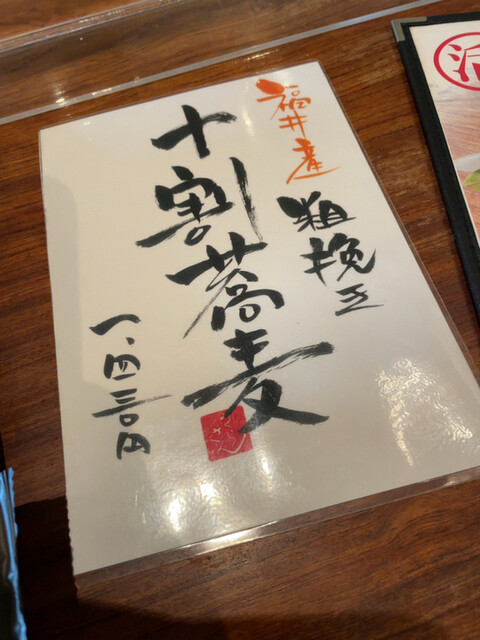 福井産
粗挽き
十割蕎麦
一、四三〇円